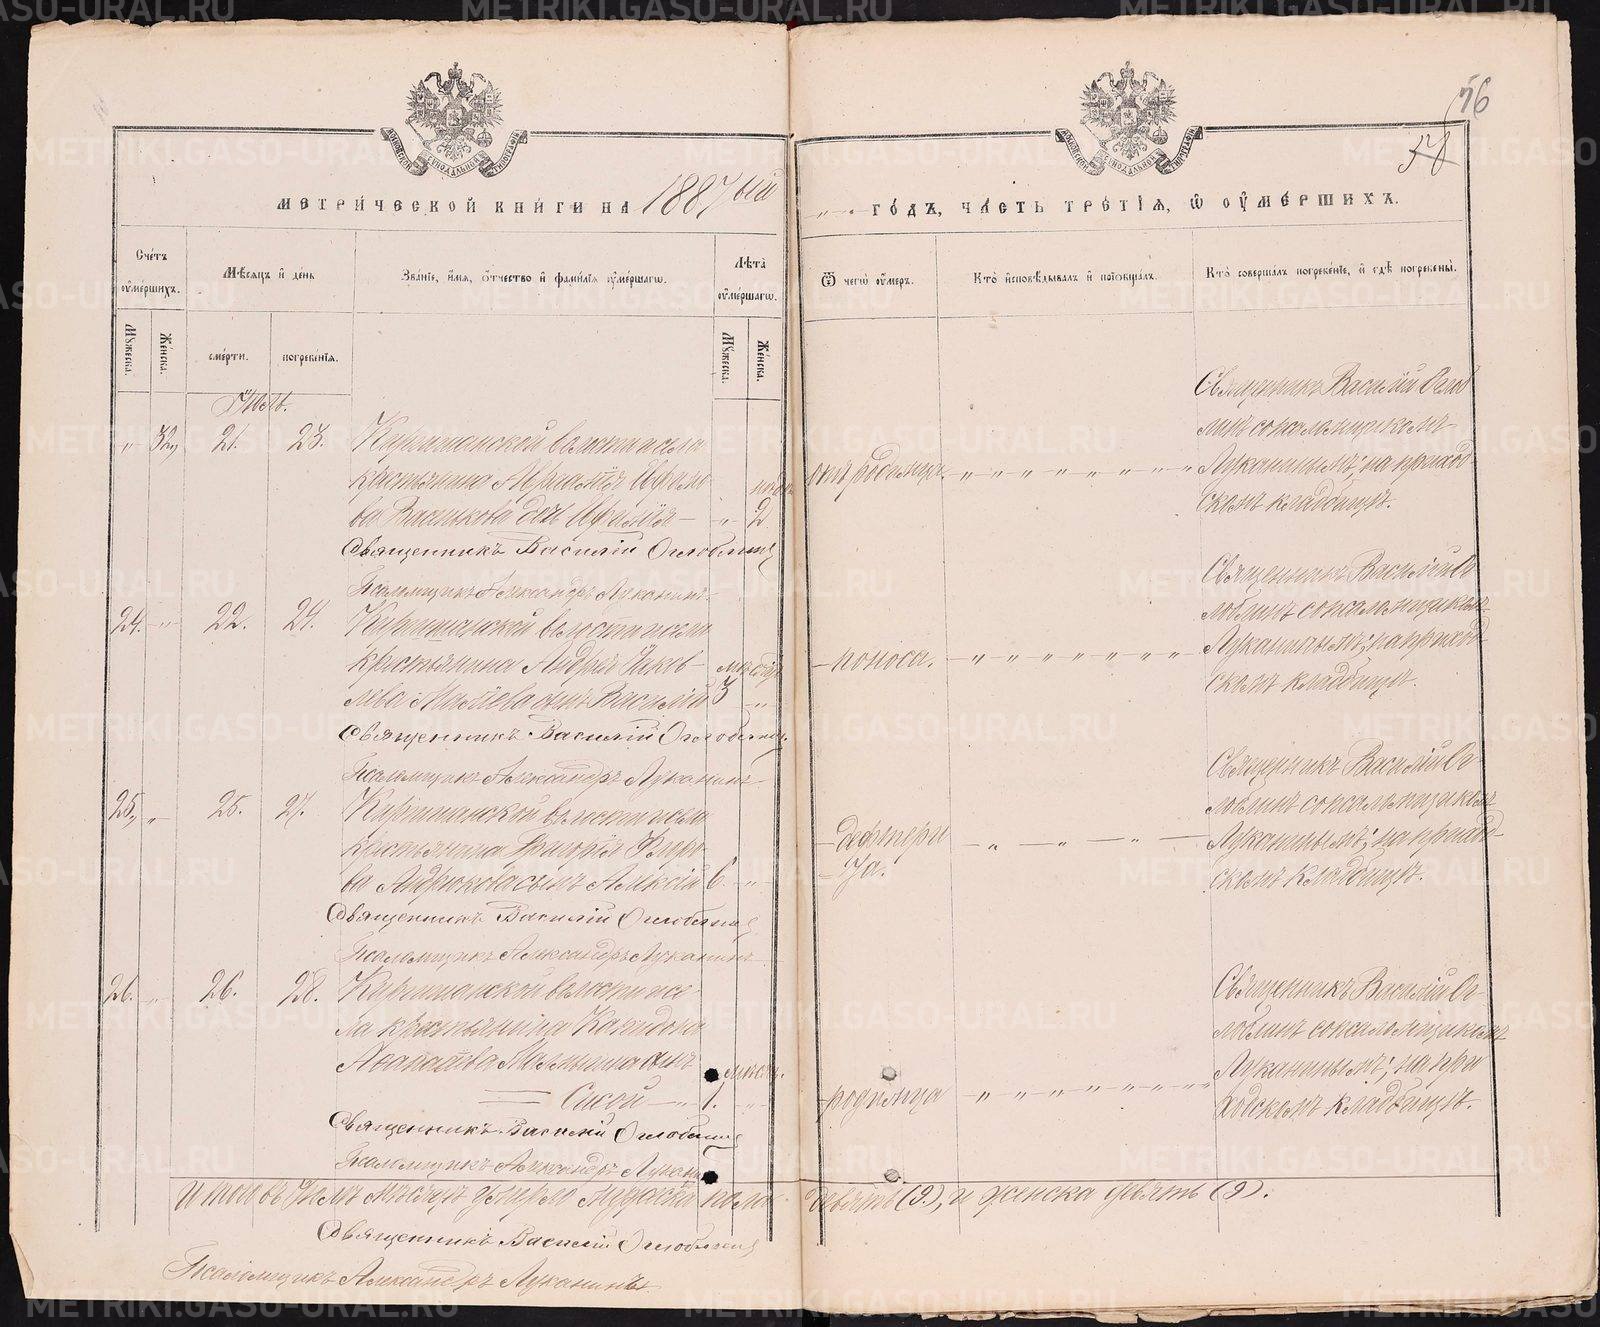 METRIKI.GASO-URAL.RU
56
58
МЕТРИЧЕСКОЙ КНИГИ НА 1887ый
ГОДЪ, ЧАСТЬ ТРЕТІЯ, Ѿ ОУМЕРШИХЪ.
Счетъ оумершихъ.
Мѣсяцъ и день
Званіе, имя, отчество и фамилія оумершагѡ.
Лѣта оумершагѡ.
Ѿ чегѡ оумеръ.
Кто исповѣдывалъ и пріобщалъ.
Кто совершалъ погребеніе, и гдѣ погребены.
Мужеска.
Женска.
смерти.
погребенія.
Мужеска.
Женска.
Іюль.
" 32 21. 23. Киргишанской волости и села
крестьянина
Васькова дочь
" 2
отъ родимца.
Священникъ Василій Огло
блинъ съ псаломщикомъ
Лукинымъ; на приход
скомъ кладбищѣ.
Священникъ Василій Оглоблинъ
Псаломщикъ Александръ Луканинъ
24. " 22. 24. Киргишанской волости и села
крестьянина Андрея Яков
лева сынъ Василій 3 "
поноса.
Священникъ Василій Ог
лоблинъ съ псаломщикомъ
Луканинымъ; на приход
скомъ кладбищѣ.
Священникъ Василій Оглоблинъ
Псаломщикъ Александръ Луканинъ
25. " 25. 27. Киргишанской волости и села
крестьянина Григорія Флоро
ва сынъ Алексій 6 "
дефтери
та.
Священникъ Василій Ог
лоблинъ съ псаломщикомъ
Луканинымъ; на приход
скомъ кладбищѣ.
Священникъ Василій Оглоблинъ
Псаломщикъ Александръ Луканинъ
26. " 26. 28. Киргишанской волости и се
ла крестьянина
сынъ
Сисой 1. "
родимца
Священникъ Василій Ог
лоблинъ съ псаломщикомъ
Луканинымъ; на при
ходскомъ кладбищѣ.
Священникъ Василій Оглоблинъ
Псаломщикъ Александръ Луканинъ
Итого въ Іюлѣ мѣсяцѣ умерло мужска пола девять (9), и женска девять (9).
Священникъ Василій Оглоблинъ
Псаломщикъ Александръ Луканинъ